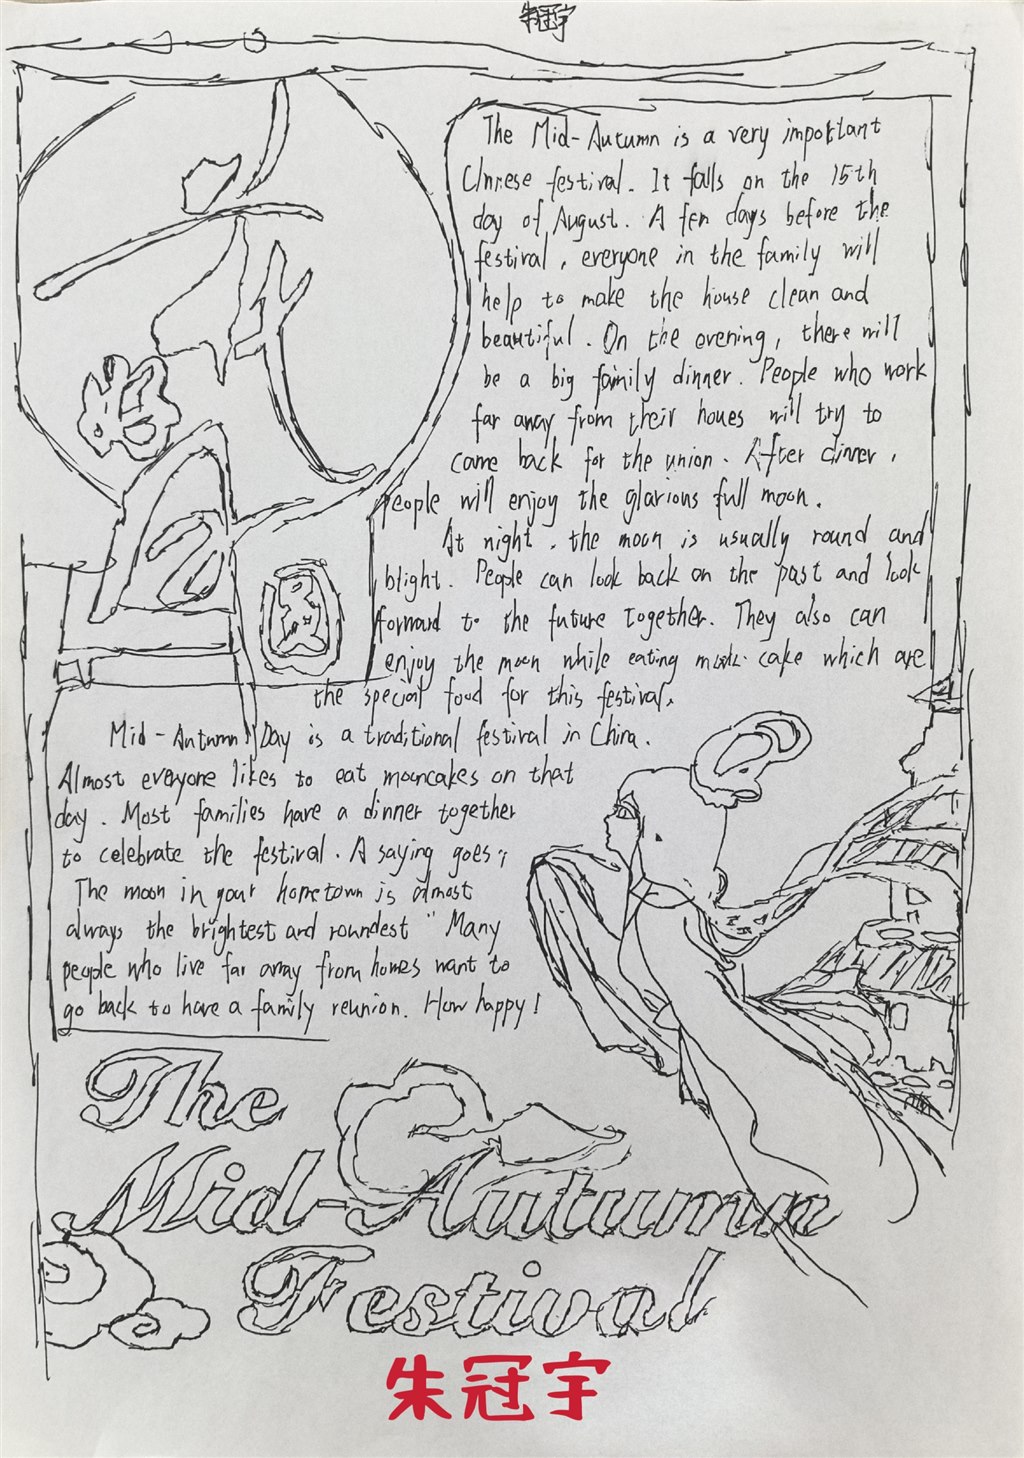 朱冠宇
The Mid-Autumn is a very important
Chinese festival. It falls on the 15th
day of August. A few days before the
festival, everyone in the family will
help to make the house clean and
beautiful. On the evening, there will
be a big family dinner. People who work
far away from their homes will try to
come back for the union. After dinner,
people will enjoy the glarious full moon.
At night, the moon is usually round and
blight. People can look back on the past and look
forward to the future together. They also can
enjoy the moon while eating cake which are
the special food for this festival.
Mid-Autumn Day is a traditional festival in China.
Almost everyone likes to eat mooncakes on that
day. Most families have a dinner together
to celebrate the festival. A saying goes:
The moon in your hometown is almost
always the brightest and roundest" Many
people who live far away from homes want to
go back to have a family reunion. How happy!
The
Mid-Autumn
Festival
朱冠宇